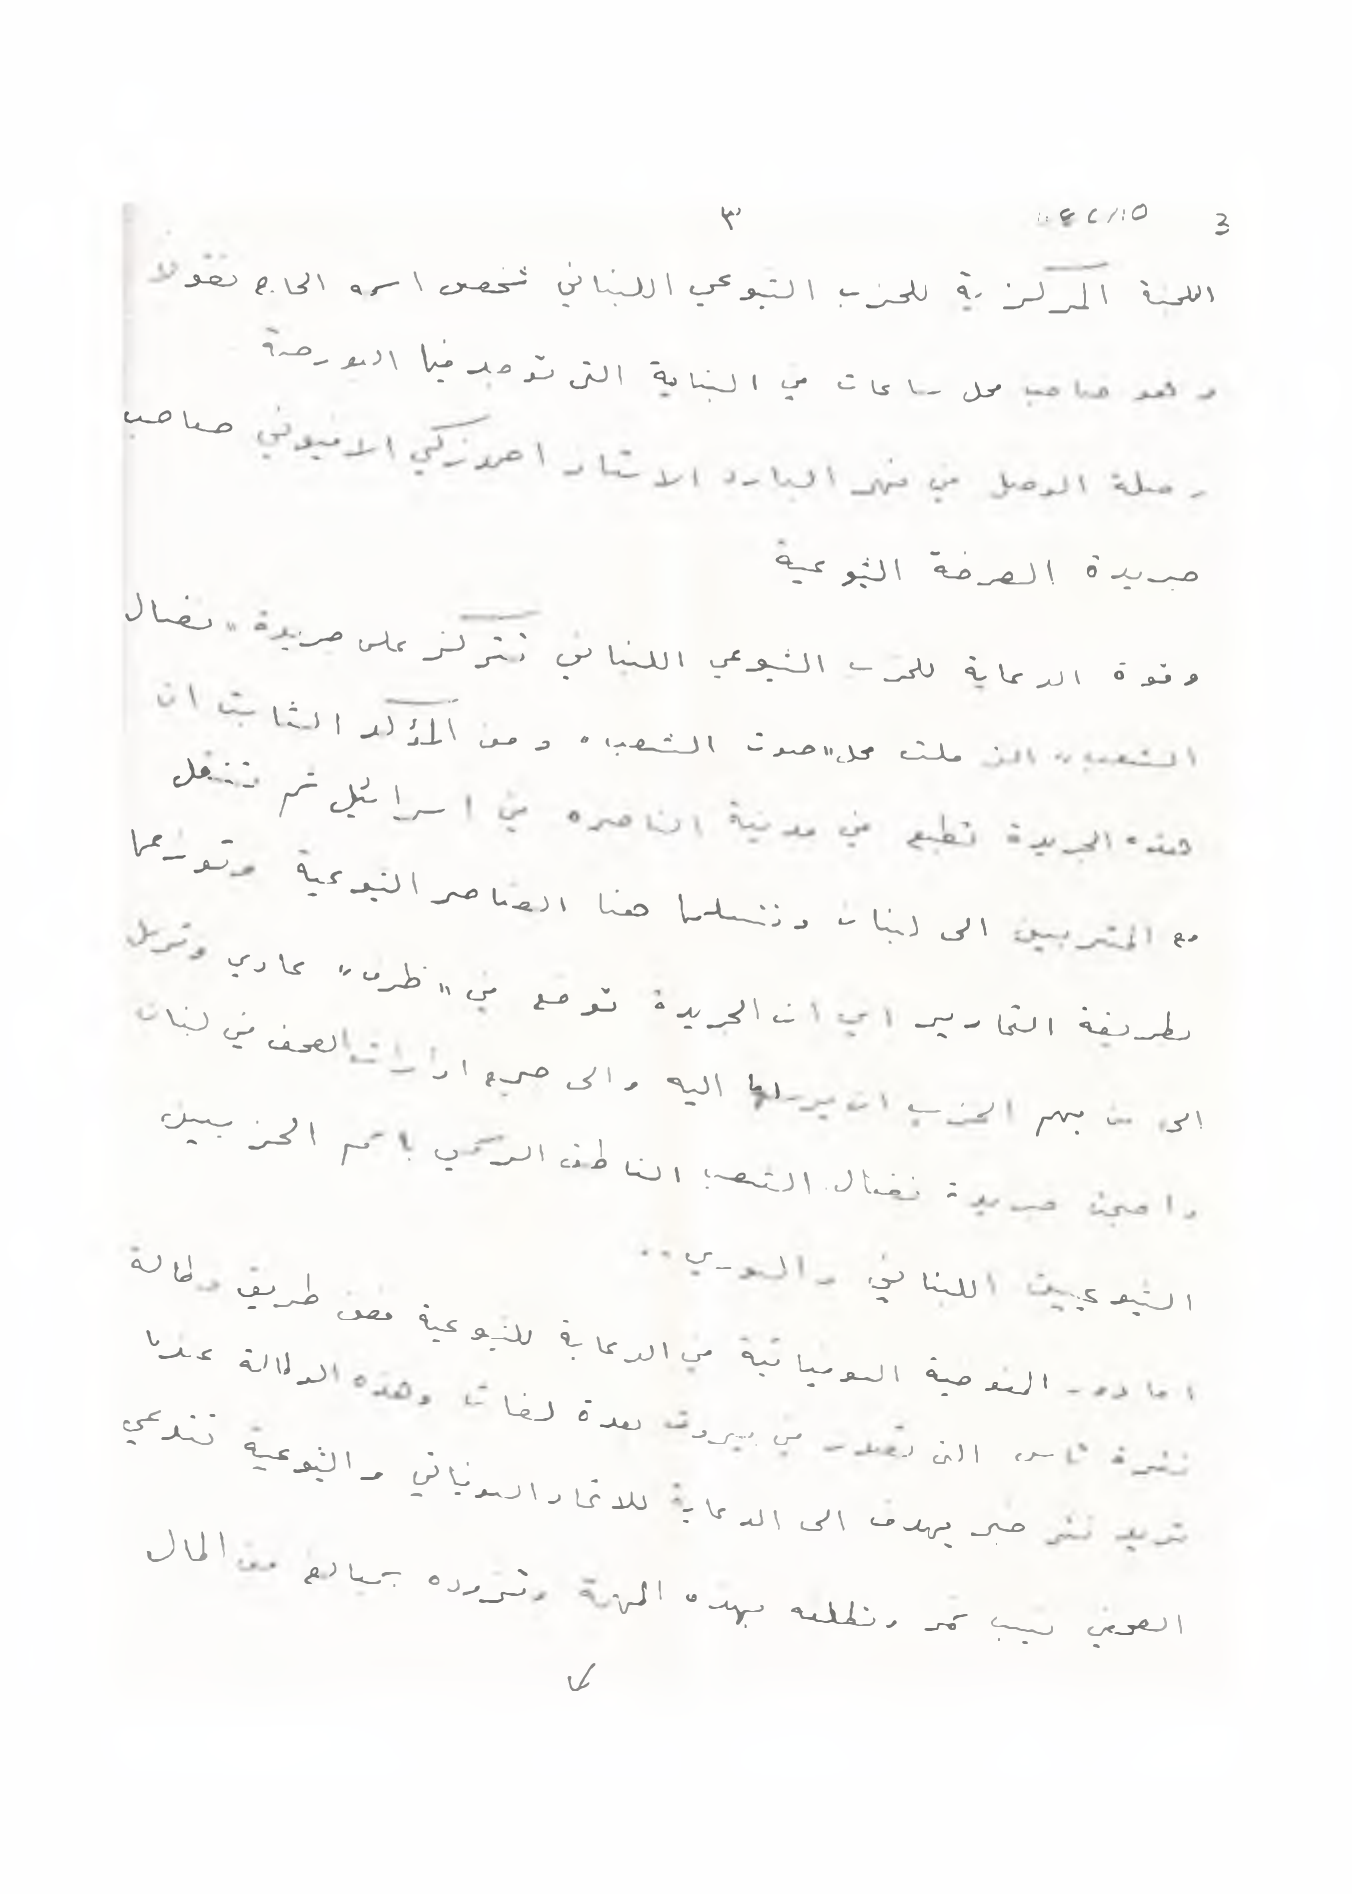 3 ٣
اللجنة المركزية للحزب الشيوعي اللبناني شخص اسمه الحاج نقولا
وهو صاحب محل ساعات في البناية التي توجد فيها البورصة
وصلة الوصل في نهر البارد الاستاذ احمد زكي الافيوني صاحب
جريدة الصرخة الشيوعية
وقوة الدعاية للحزب الشيوعي اللبناني تتركز على جريدة "نضال
الشعب" التي حلت محل "صوت الشعب" ومن المؤكد الثابت ان
هذه الجريدة تطبع في مدينة الناصره في اسرائيل ثم تنتقل
مع المتسربين الى لبنان وتتسلمها هنا العناصر الشيوعية وتوزعها
بطريقة التحارير اي ان الجريدة توضع في "ظرف" عادي وترسل
الى من يهم الحزب ان يرسلها اليه والى جميع ادارات الصحف في لبنان
واصبحت جريدة نضال الشعب الناطق الرسمي باسم الحزبين
الشيوعيين اللبناني والسوري ..
اما دور المفوضية السوفياتية في الدعاية للشيوعية فعن طريق وكالة
نشرة تاس التي تصدر في بيروت بعدة لغات وهذه الوكالة عندما
تريد نشر خبر يهدف الى الدعاية للاتحاد السوفياتي والشيوعية تستدعي
الصحفي نسيب نمر وتكلفه بهذه المهمة وتزوده بمبالغ من المال